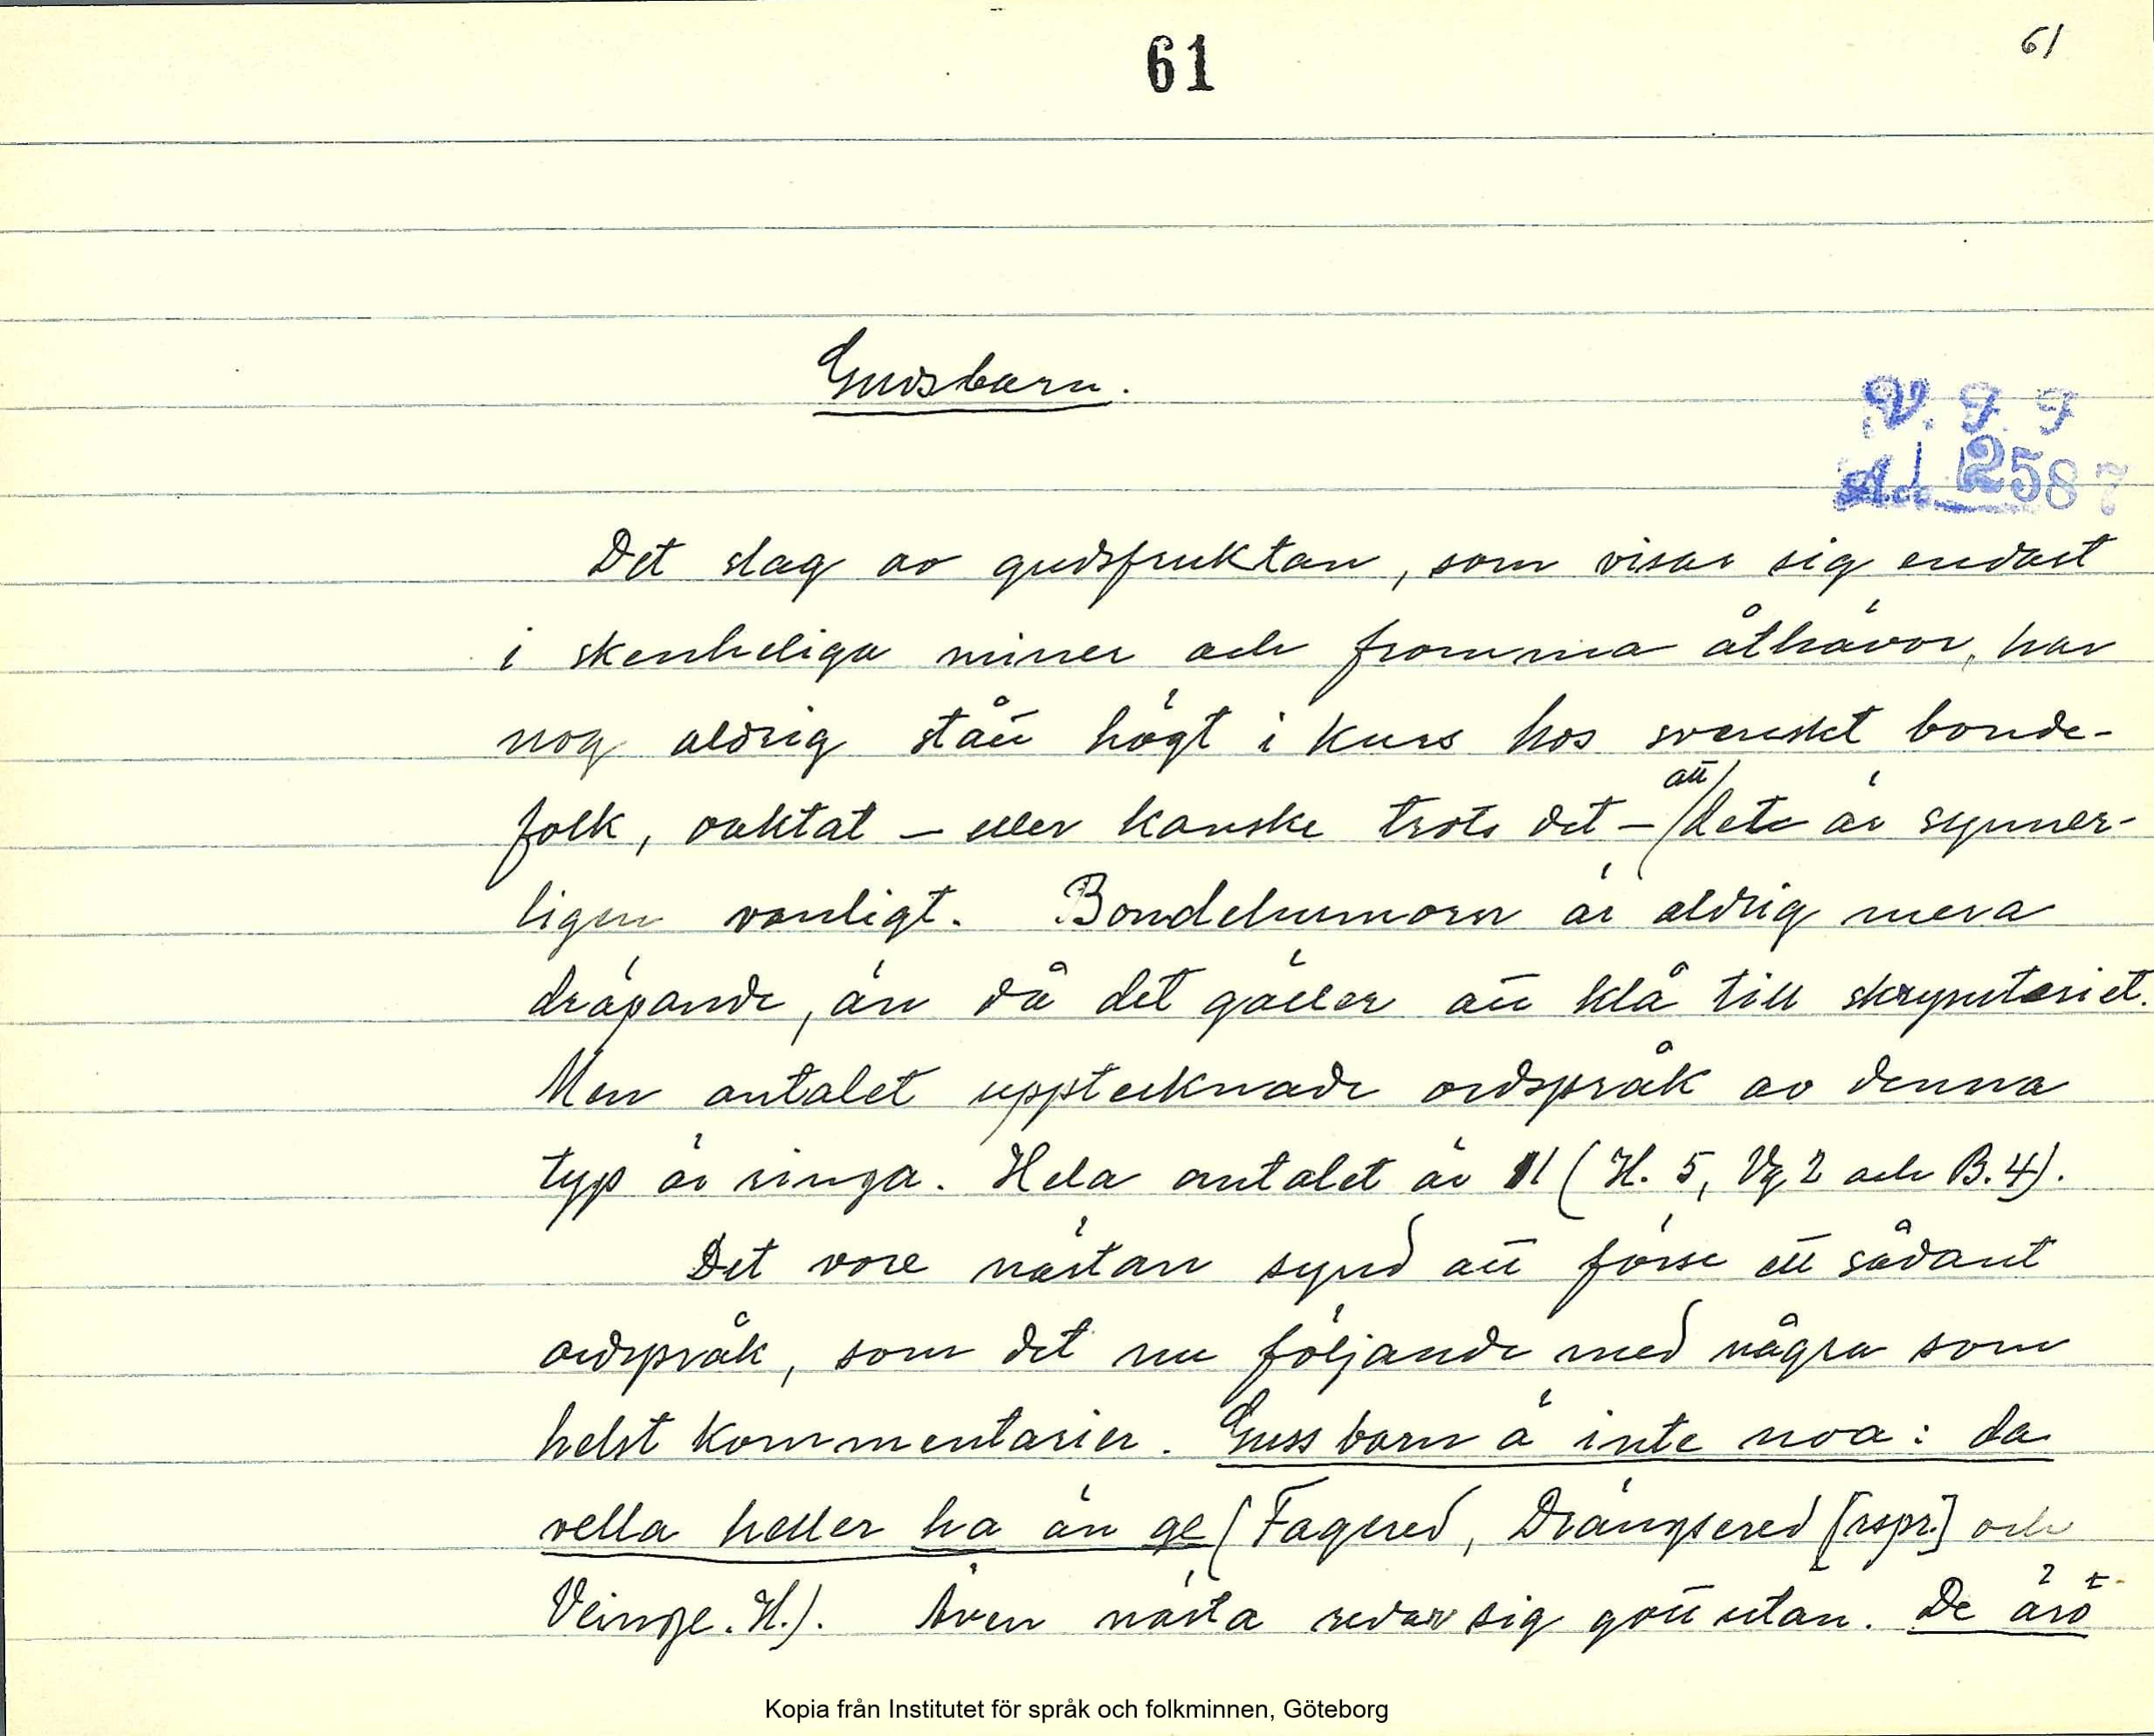 61
61
Gudsbarn.
V. F. F
Acc. 2587
Det slag av gudsfruktan, som visar sig endast
i skenheliga miner och fromma åthävor, har
nog aldrig stått högt i kurs hos svenskt bonde-
folk, oaktat – eller kanske trots det – att dete är synner-
ligen vanligt. Bondehumorn är aldrig mera
dräpande, än då det gäller att klå till skrymteriet.
Men antalet upptecknade ordspråk av denna
typ är ringa. Hela antalet är 11 (H. 5, Vg 2 och B. 4).
Det vore nästan synd att förse ett sådant
ordspråk, som det nu följande med några som
helst kommentarier. Guss barn ä inte noa: da
vella heller ha än ge (Fagered, Drängsered [rspr.] och
Veinge. H.). Även nästa redar sig gott utan. De ärö
Kopia från Institutet för språk och folkminnen, Göteborg